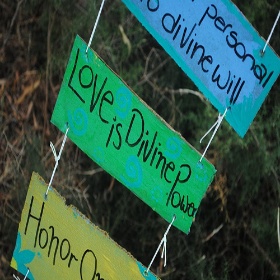 personal
to divine will
Love is Divine Power
Honor